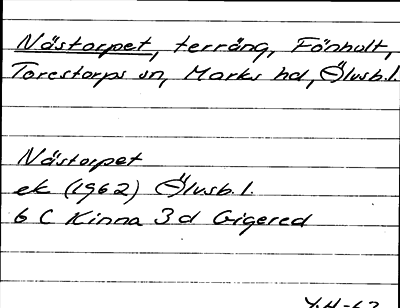 Nästorpet, terräng, Fönhult,
Torestorps sn, Marks hd, Älvsb.l.
Nästorpet
ek (1962) Älvsb.l.
6 C Kinna 3d Gigered